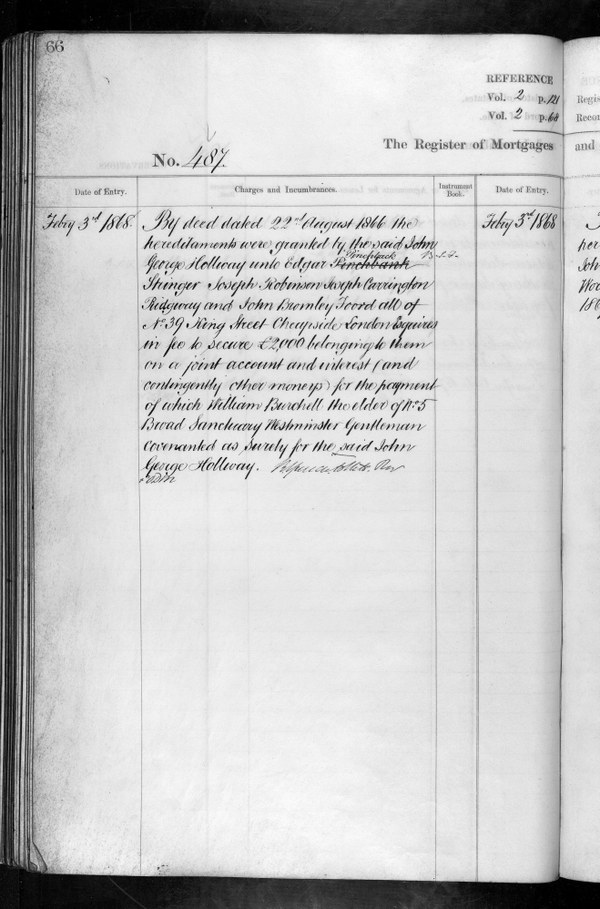 66
REFERENCE
Vol. 2 p. 121
Vol. 2 p. 68
The Register of Mortgages and
No. 487.
Date of Entry.
Charges and Incumbrances.
Instrument Book.
Date of Entry.
Feby 3rd 1868.
By deed dated 22nd August 1866 the
hereditaments were granted by the said John
Pinchback
George Holliway unto Edgar Pinchbank
Stringer Joseph Robinson Joseph Carrington
Ridgway and John Bromley Foord all of
No. 39 King Street Cheapside London Esquires
in fee to secure £2,000 belonging to them
on a joint account and interest (and
contingently other moneys) for the payment
of which William Burchell the elder of No. 5
Broad Sanctuary Westminster Gentleman
covenanted as surety for the said John
George Holliway.
Feby 3rd 1868
Regis
Recor